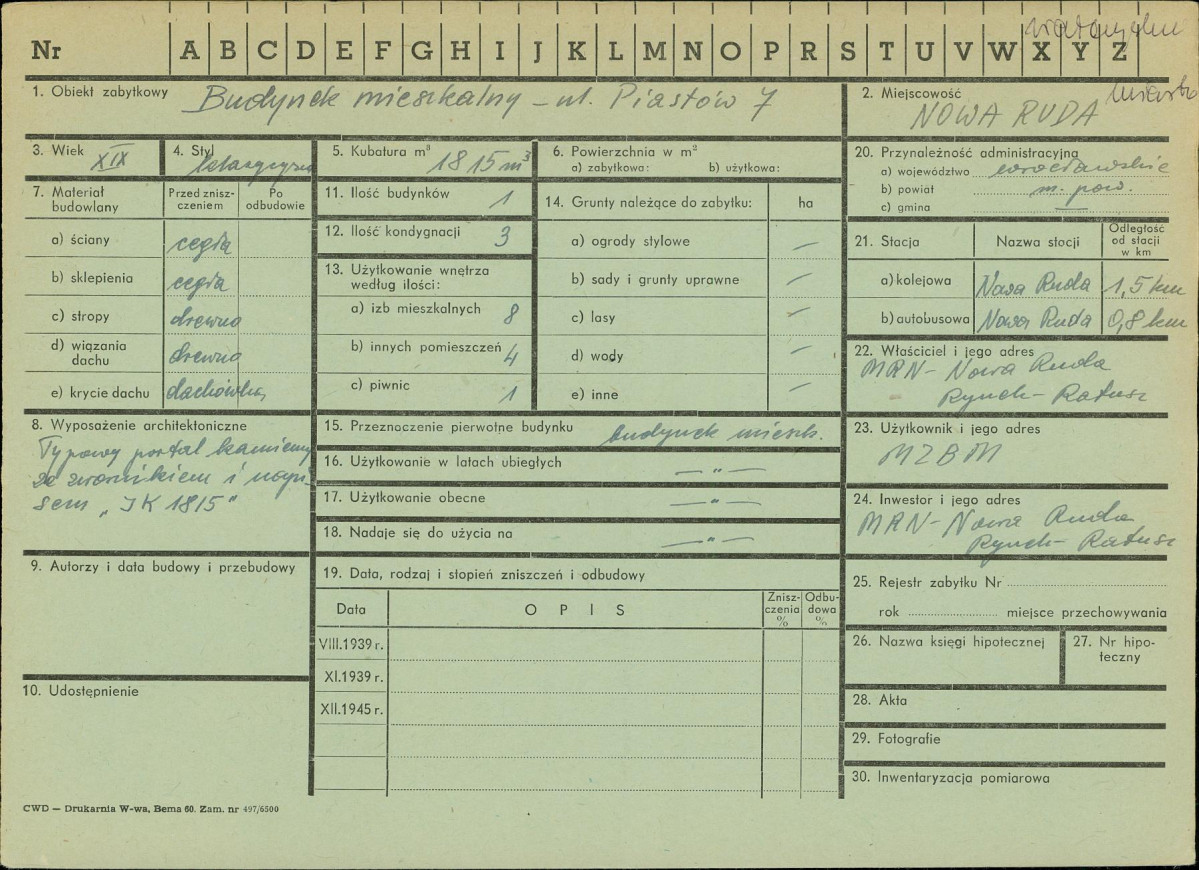 Nr A B C D E F G H I J K L M N O P R S T U V W X Y Z
1. Obiekt zabytkowy Budynek mieszkalny – ul. Piastów 7
2. Miejscowość NOWA RUDA
miasto
3. Wiek XIX
4. Styl
5. Kubatura m³ 1815 m³
6. Powierzchnia w m²
a) zabytkowa: b) użytkowa:
7. Materiał budowlany
Przed znisz-
czeniem
Po
odbudowie
a) ściany cegła
b) sklepienia cegła
c) stropy drewno
d) wiązania
dachu drewno
e) krycie dachu dachówka
8. Wyposażenie architektoniczne
Typowy portal kamienny
ze zwornikiem i napi-
sem „JK 1815"
9. Autorzy i data budowy i przebudowy
10. Udostępnienie
11. Ilość budynków 1
12. Ilość kondygnacji 3
13. Użytkowanie wnętrza
według ilości:
a) izb mieszkalnych 8
b) innych pomieszczeń 4
c) piwnic 1
14. Grunty należące do zabytku: ha
a) ogrody stylowe –
b) sady i grunty uprawne –
c) lasy –
d) wody –
e) inne –
15. Przeznaczenie pierwotne budynku budynek mieszk.
16. Użytkowanie w latach ubiegłych — " —
17. Użytkowanie obecne — " —
18. Nadaje się do użycia na — " —
19. Data, rodzaj i stopień zniszczeń i odbudowy
Data OPIS
Znisz-
czenia
%
Odbu-
dowa
%
VIII.1939 r.
XI.1939 r.
XII.1945 r.
20. Przynależność administracyjna
a) województwo wrocławskie
b) powiat m. pow.
c) gmina —
21. Stacja Nazwa stacji
Odległość
od stacji
w km
a) kolejowa Nowa Ruda 1,5 km
b) autobusowa Nowa Ruda 0,8 km
22. Właściciel i jego adres
MRN – Nowa Ruda
Rynek – Ratusz
23. Użytkownik i jego adres
MZBM
24. Inwestor i jego adres
MRN – Nowa Ruda
Rynek – Ratusz
25. Rejestr zabytku Nr
rok miejsce przechowywania
26. Nazwa księgi hipotecznej
27. Nr hipo-
teczny
28. Akta
29. Fotografie
30. Inwentaryzacja pomiarowa
CWD — Drukarnia W-wa, Bema 60. Zam. nr 497/6500